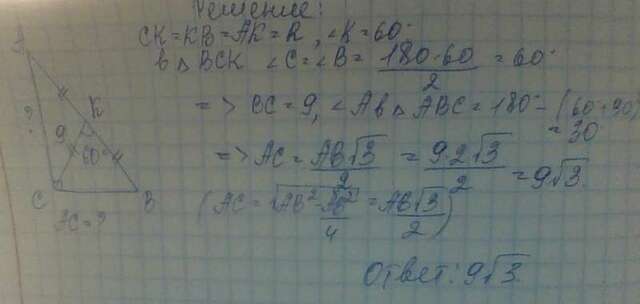 Решение:
CK=KB=AK=R, ∠K=60°
В △ BCK ∠C=∠B= (180-60)/2 =60°
=> BC=9, ∠A в △ ABC=180°-(60+90)
=30
=> AC= AB√3/2 = 9·2√3/2 =9√3
(AC=√(AB²-AB²/4) = AB√3/2)
Ответ: 9√3
A
K
?
9
60°
C
B
AC=?